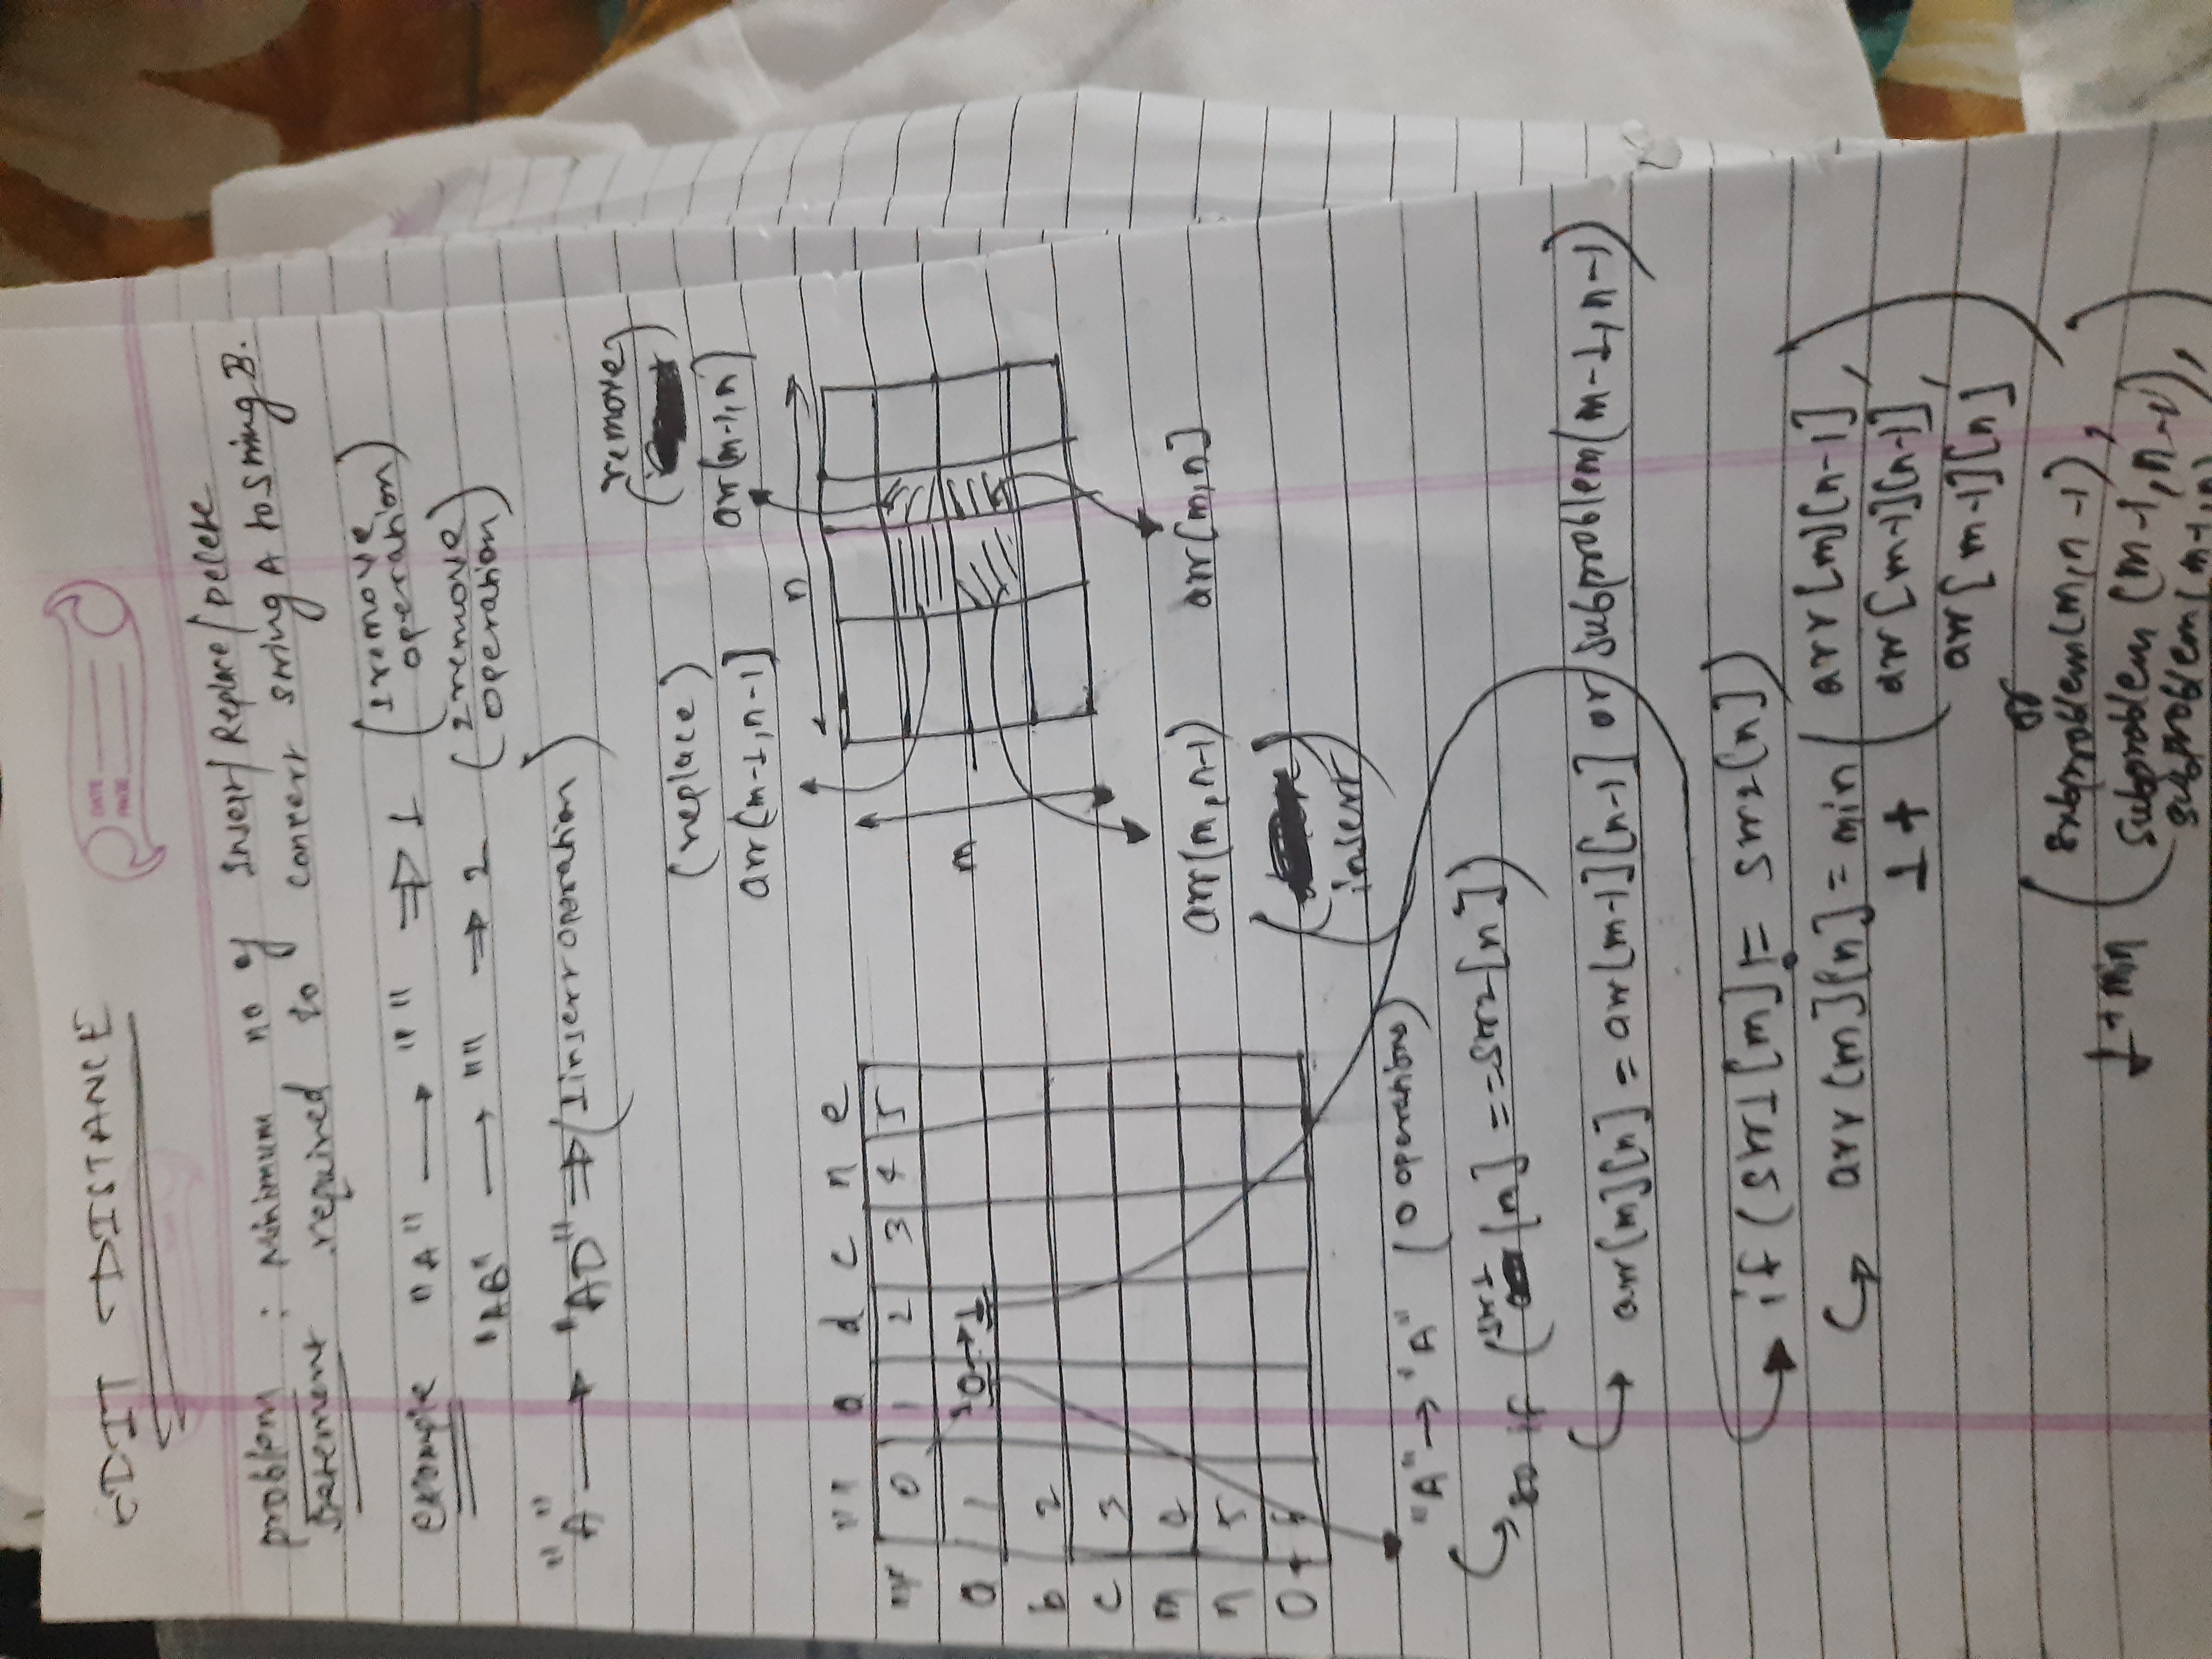 EDIT DISTANCE
DATE
PAGE
problem : Minimum no of Insert/Replace/Delete
Statement required to convert string A to string B.
example "A" → "" ⇒ 1 (1 remove operation)
"AB" → "" ⇒ 2 (2 remove operation)
"A" → "AD" ⇒ (1 insert operation)
(replace)
arr[m-1,n-1]
remove
arr(m-1,n)
n
m
arr(m,n-1)
(insert)
arr[m,n]
"" a d c n e
"" 0 1 2 3 4 5
a 1 0→1
b 2
c 3
m 4
n 5
o 6
"A" → "A" (0 operations)
so if (str1[m] == str2[n])
arr[m][n] = arr[m-1][n-1] or subproblem(m-1,n-1)
if (str1[m] != str2[n])
arr[m][n] = min ( arr[m][n-1],
1 + arr[m-1][n-1],
arr[m-1][n] )
or
subproblem(m,n-1),
1 + min ( subproblem (m-1,n-1),
subproblem(m-1,n)